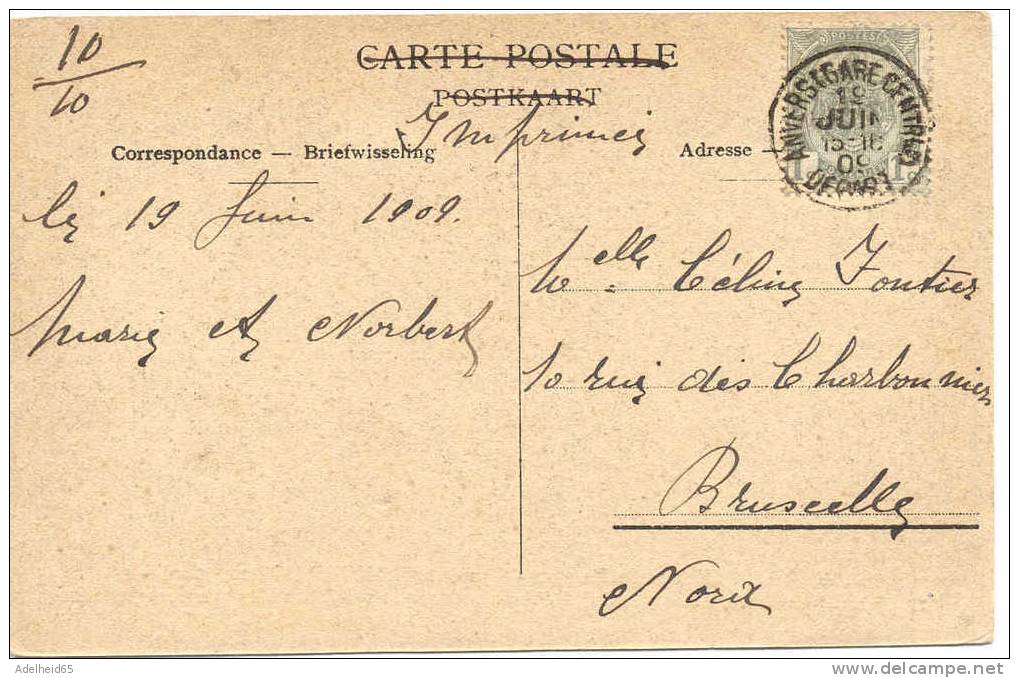 10
10
CARTE POSTALE
POSTKAART
Imprimée
Correspondance — Briefwisseling
Adresse —
POSTES
ANVERS GARE CENTRALE
19
JUIN
09
DEPART
1 1
le 19 Juin 1909.
Marie et Norbert
Melle Céline Fontier
10 rue des Charbonniers
Bruxelles
Nord
Adelheid65
delcampe.net